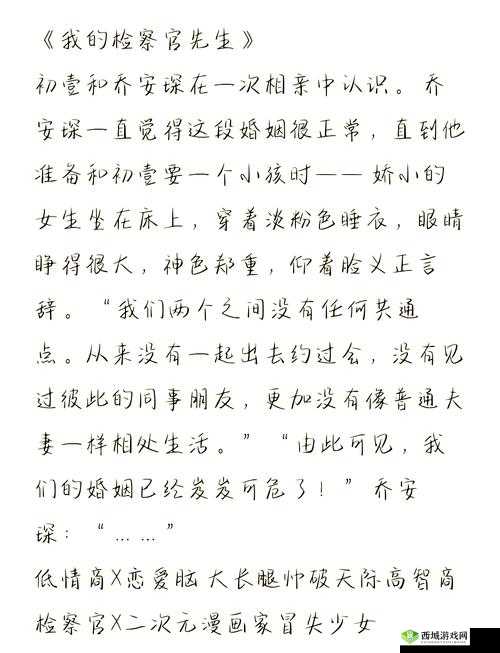 《我的检察官先生》
初壹和乔安琛在一次相亲中认识。乔
安琛一直觉得这段婚姻很正常，直到他
准备和初壹要一个小孩时——娇小的
女生坐在床上，穿着淡粉色睡衣，眼睛
睁得很大，神色郑重，仰着脸义正言
辞。“我们两个之间没有任何共通
点。从来没有一起出去约过会，没有见
过彼此的同事朋友，更加没有像普通夫
妻一样相处生活。”“由此可见，我
们的婚姻已经岌岌可危了！”乔安
琛：“……”
低情商X恋爱脑 大长腿帅破天际高智商
检察官X二次元漫画家冒失少女
西城游戏网